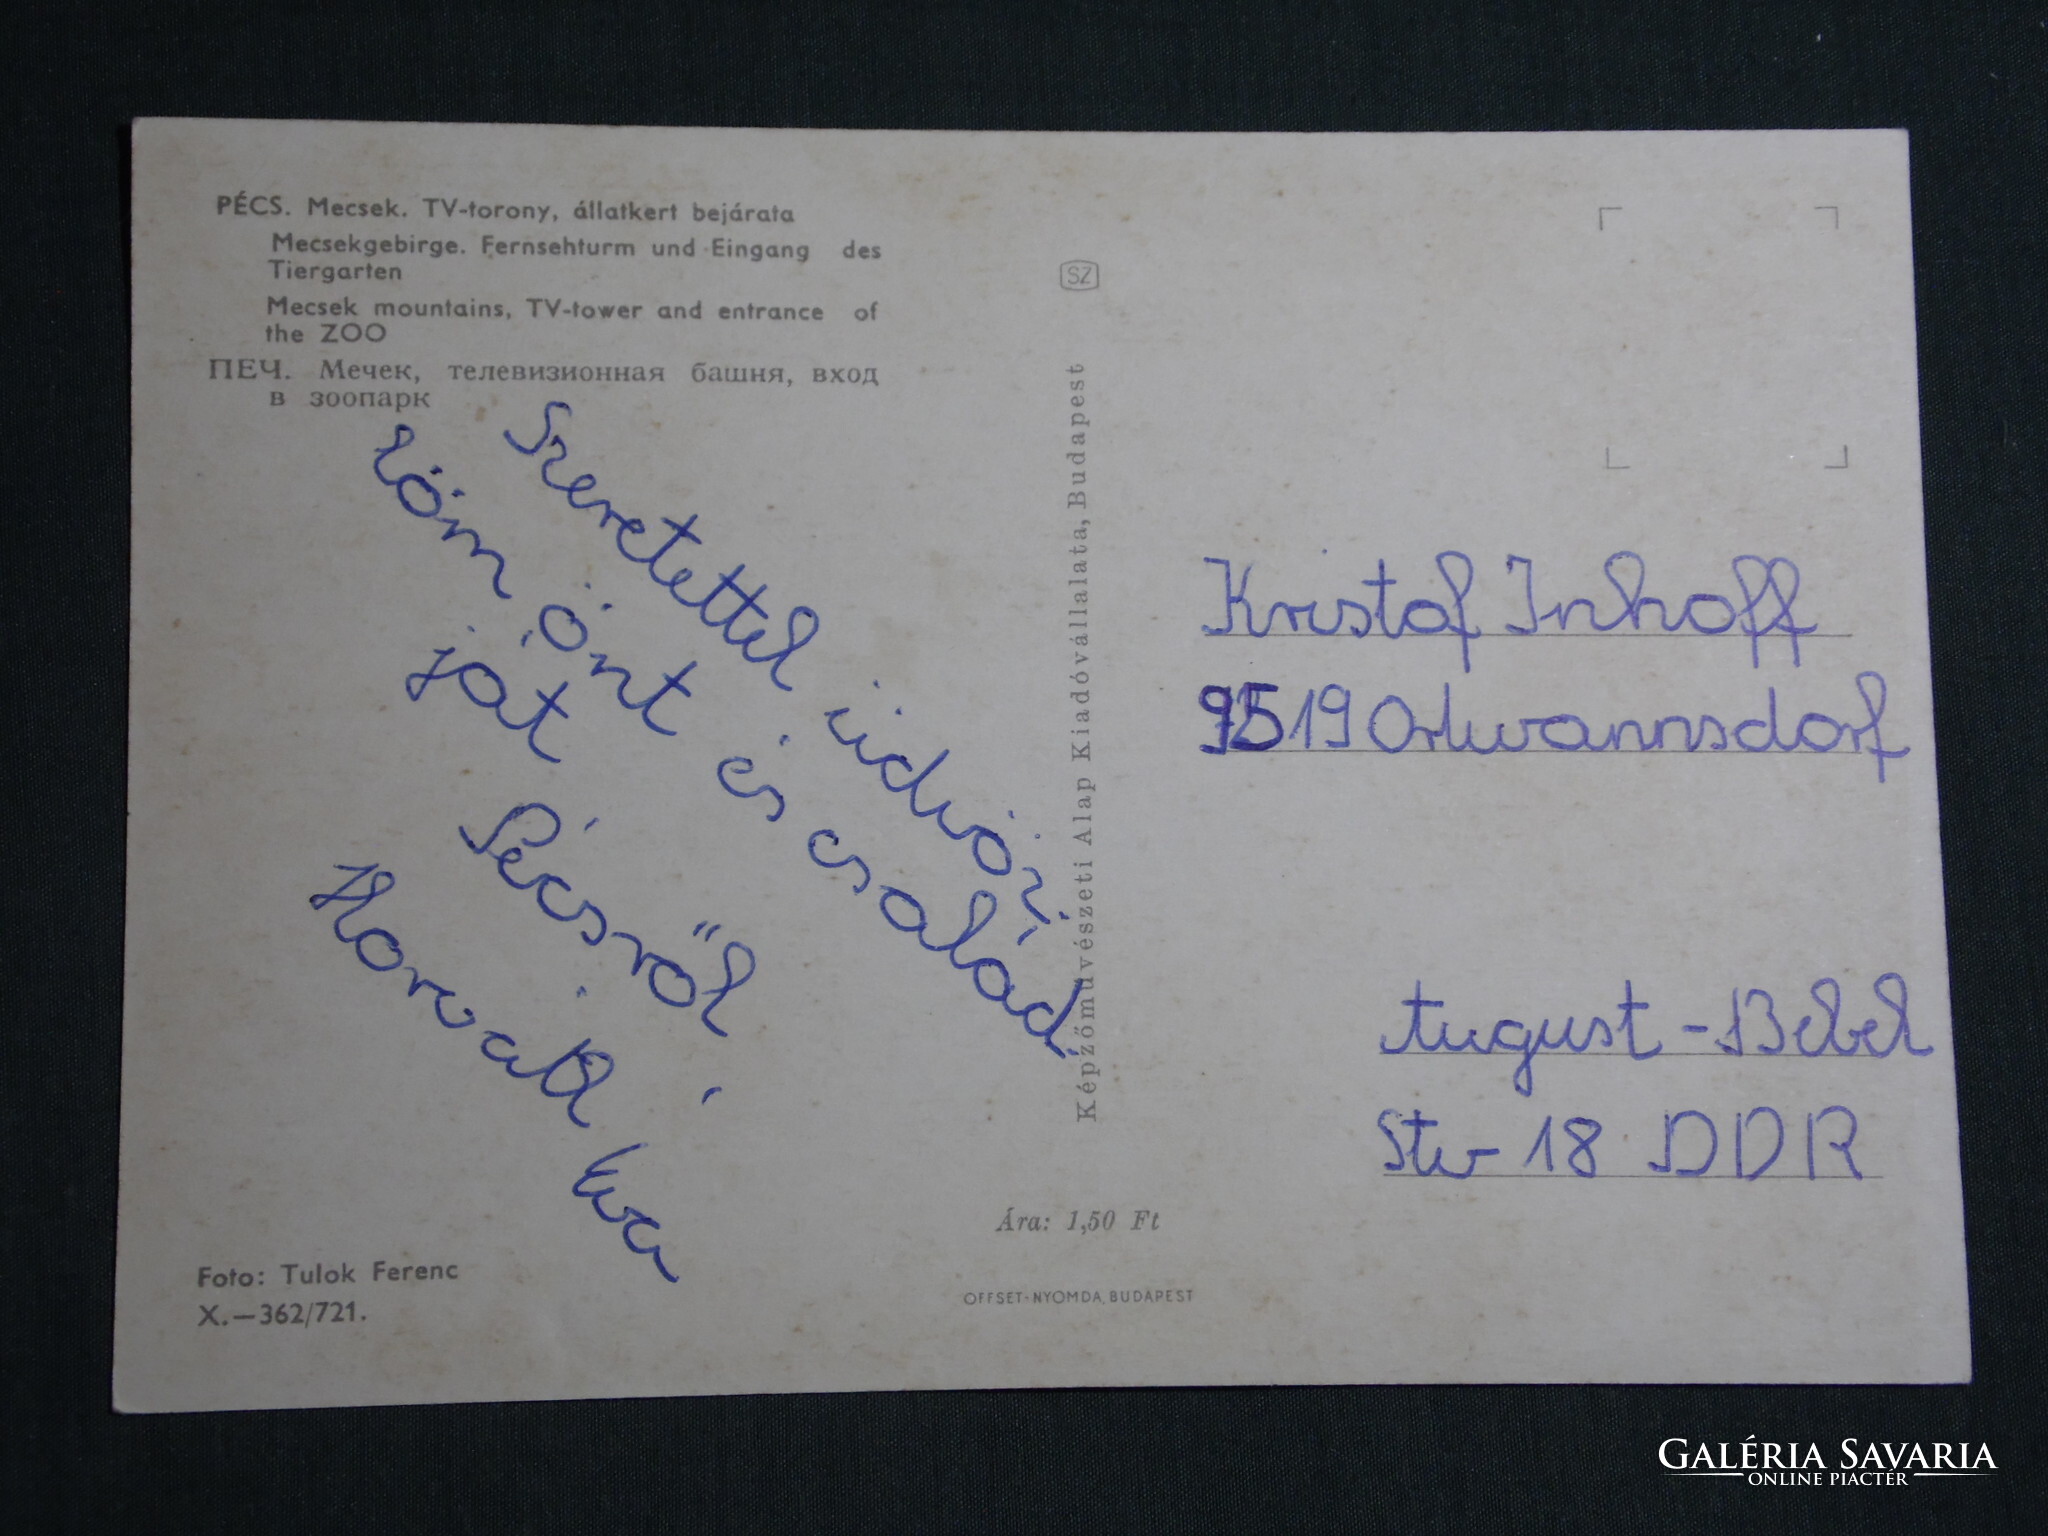 PÉCS. Mecsek. TV-torony, állatkert bejárata
Mecsekgebirge. Fernsehturm und Eingang des
Tiergarten
Mecsek mountains, TV-tower and entrance of
the ZOO
ПЕЧ. Мечек, телевизионная башня, вход
в зоопарк
Szeretettel üdvöz-
löm önt és család-
ját Pécsről
Horváth Éva
Foto: Tulok Ferenc
X.—362/721.
SZ
Képzőművészeti Alap Kiadóvállalata, Budapest
Ára: 1,50 Ft
OFFSET-NYOMDA, BUDAPEST
Kristof Inhoff
9519 Ortwannsdorf
August-Bebel
Str 18 DDR
GALÉRIA SAVARIA
ONLINE PIACTÉR